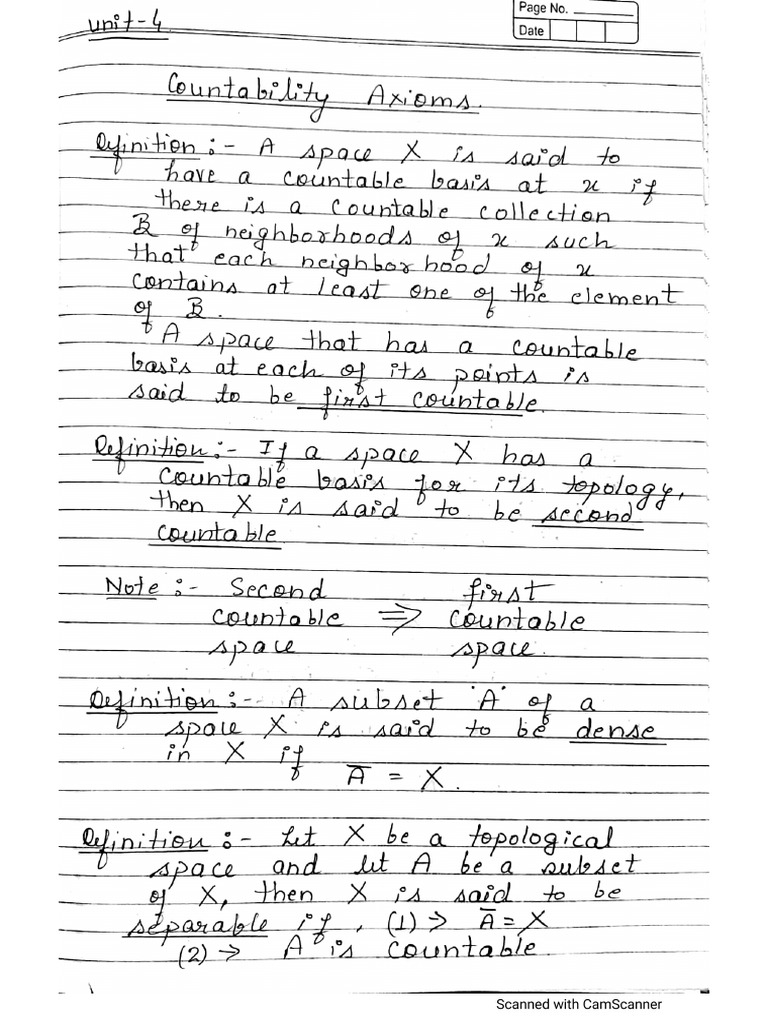 Unit-4
Page No.
Date
Countability Axioms.
Definition :- A space X is said to
have a countable basis at x if
there is a countable collection
B of neighborhoods of x such
that each neighborhood of x
contains at least one of the element
of B.
A space that has a countable
basis at each of its points is
said to be first countable.
Definition :- If a space X has a
countable basis for its topology,
then X is said to be second
countable.
Note :- Second first
countable ⇒ countable
space space.
Definition :- A subset 'A' of a
space X is said to be dense
in X if
A̅ = X.
Definition :- Let X be a topological
space and let A be a subset
of X, then X is said to be
separable if, (1) → A̅ = X
(2) → A is countable.
Scanned with CamScanner